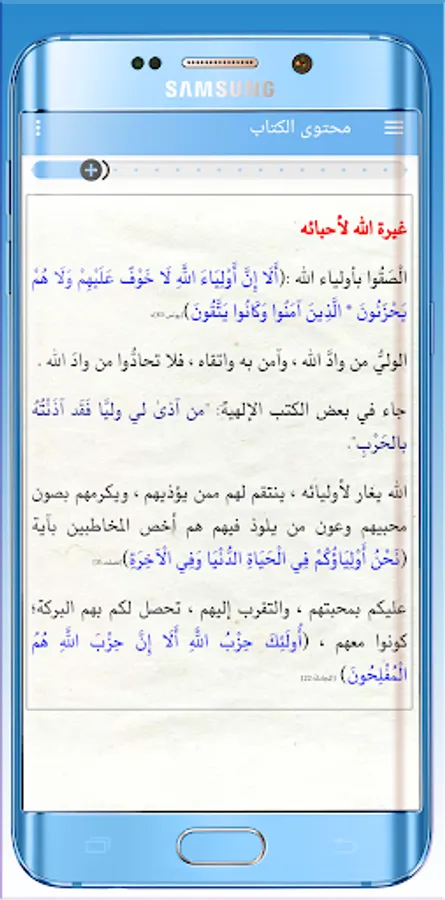 SAMSUNG
محتوى الكتاب
غيرة الله لأحبائه
الْصَقُوا بأولياء الله :(أَلَا إِنَّ أَوْلِيَاءَ اللَّهِ لَا خَوْفٌ عَلَيْهِمْ وَلَا هُمْ
يَحْزَنُونَ * الَّذِينَ آمَنُوا وَكَانُوا يَتَّقُونَ)
الوليُّ من وادَّ الله ، وآمن به واتقاه ، فلا تحادُّوا من وادَ الله .
جاء في بعض الكتب الإلهية: "من آذىٰ لي وليًّا فَقَد آذَنْتُهُ
بالحَرْبِ".
الله يغار لأوليائه ، ينتقم لهم ممن يؤذيهم ، ويكرمهم بصون
محبيهم وعون من يلوذ فيهم هم أخص المخاطبين بآية
(نَحْنُ أَوْلِيَاؤُكُمْ فِي الْحَيَاةِ الدُّنْيَا وَفِي الْآخِرَةِ)
عليكم بمحبتهم ، والتقرب إليهم ، تحصل لكم بهم البركة؛
كونوا معهم ، (أُولَئِكَ حِزْبُ اللَّهِ أَلَا إِنَّ حِزْبَ اللَّهِ هُمُ
الْمُفْلِحُونَ) (المجادلة:22)